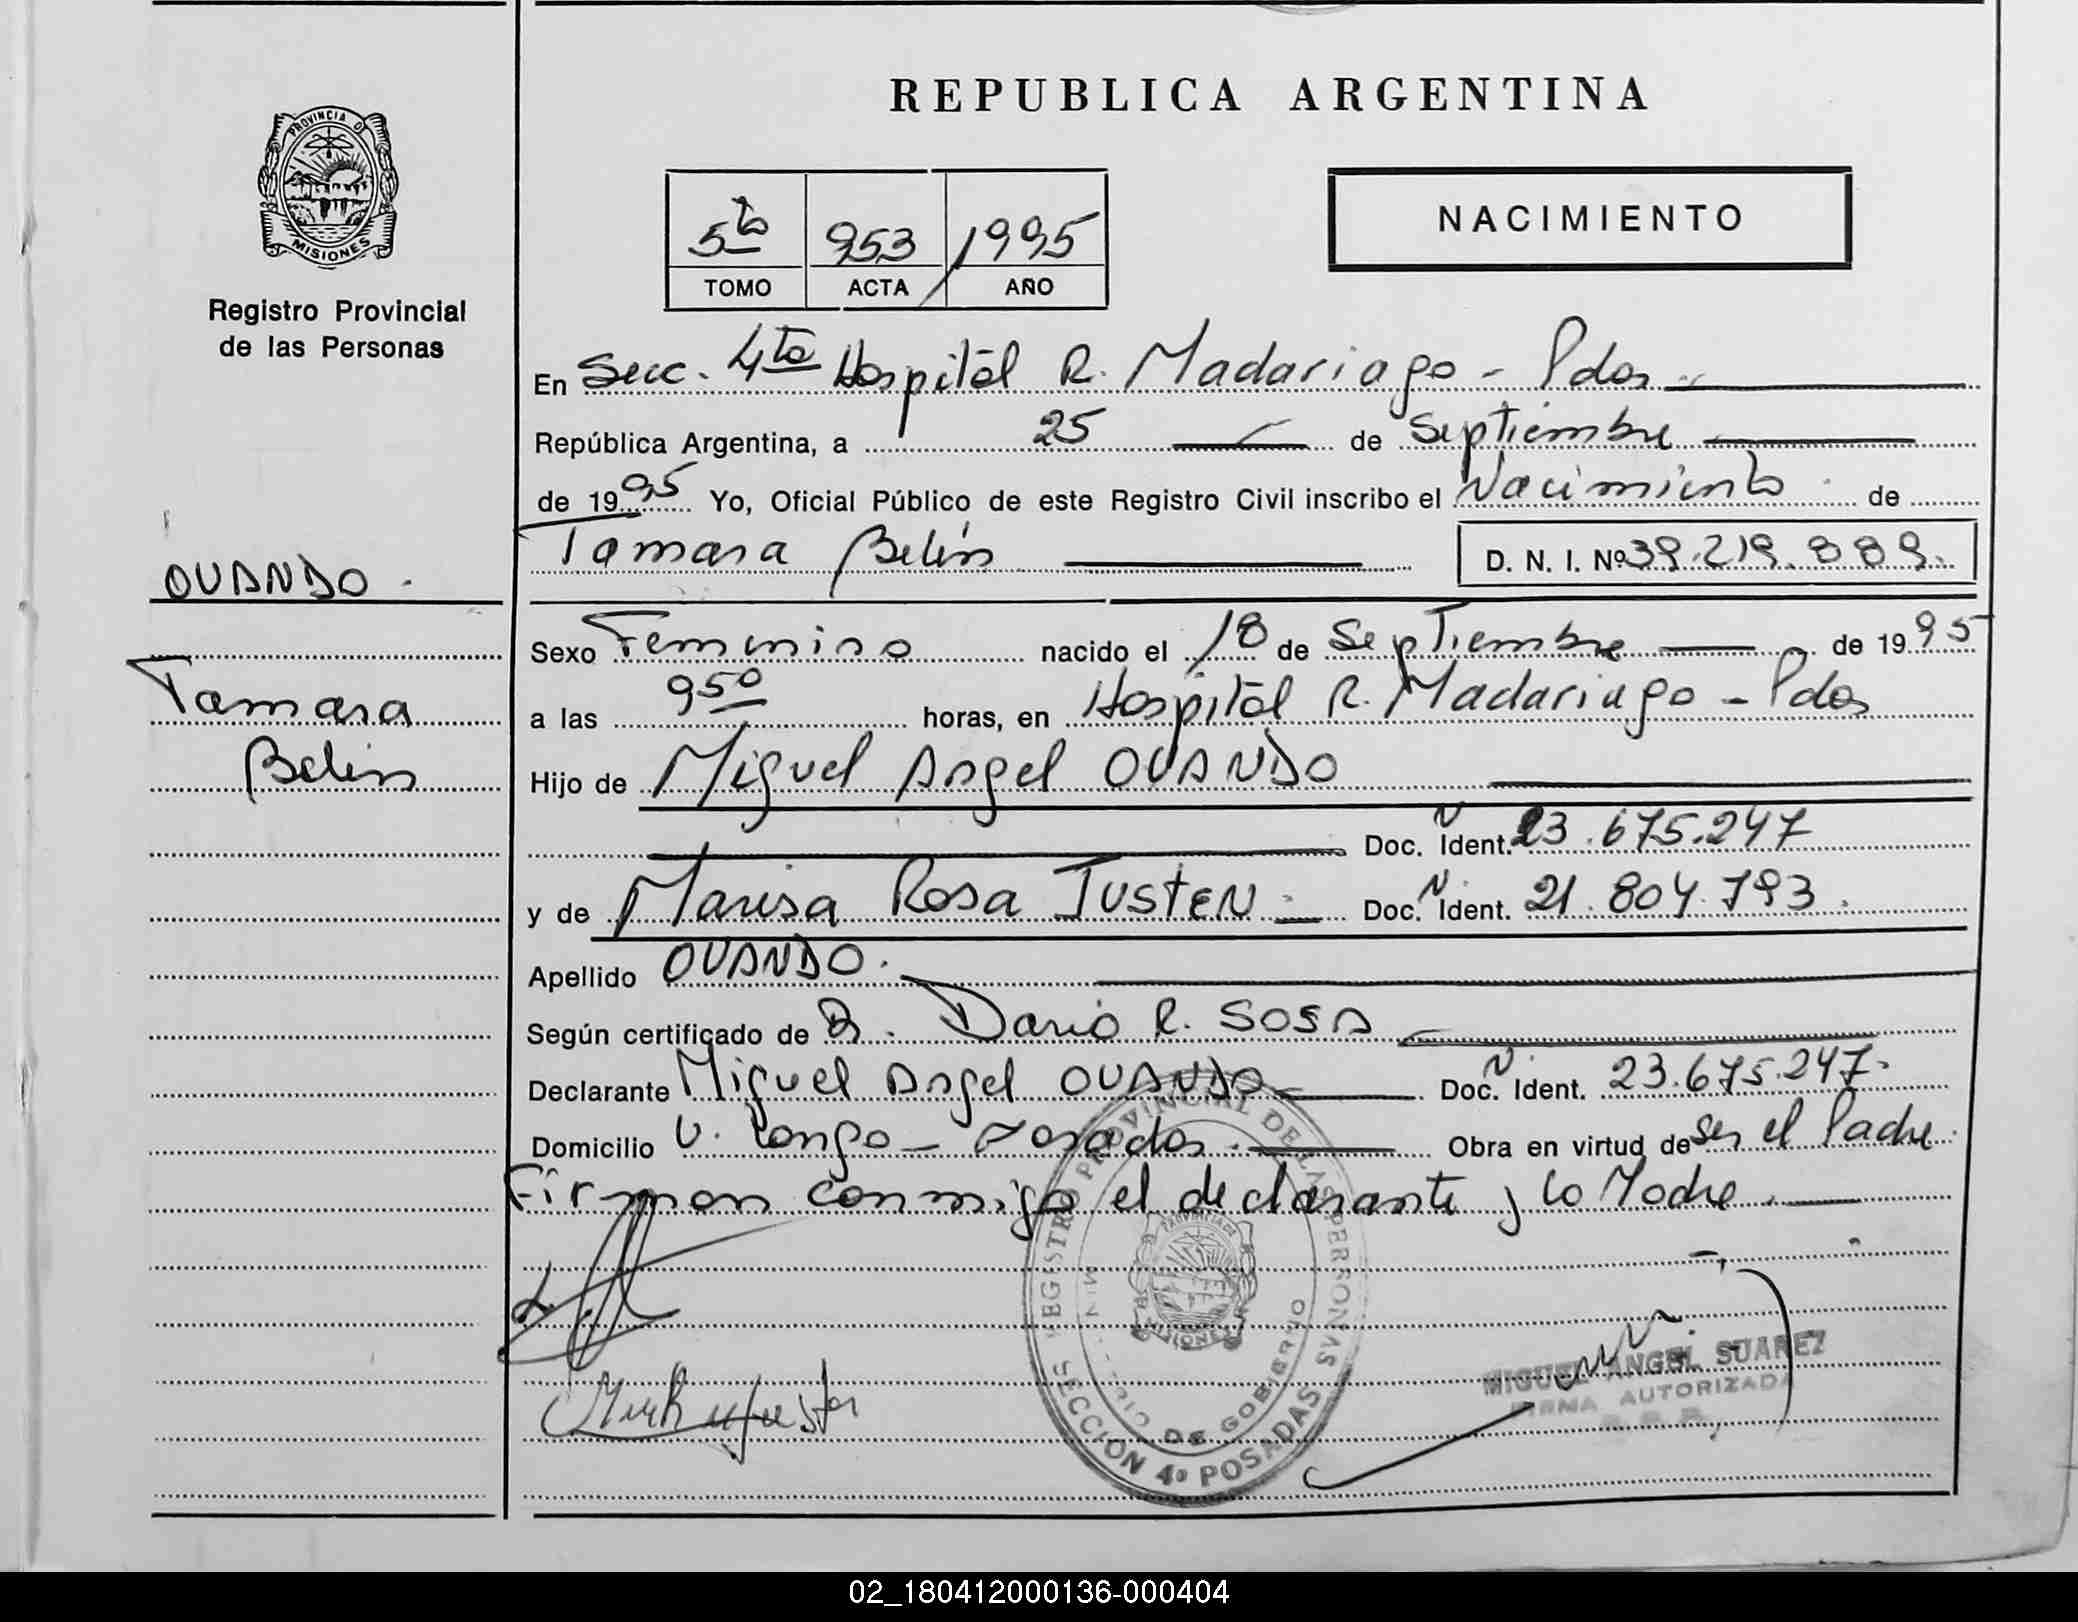 REPUBLICA ARGENTINA
PROVINCIA D
MISIONES
Registro Provincial
de las Personas
5to 953 1995
TOMO ACTA AÑO
NACIMIENTO
En Secc. 4ta Hospital R. Madariaga - Pdas
República Argentina, a 25 de Septiembre
de 1995 Yo, Oficial Público de este Registro Civil inscribo el Nacimiento de
Tamara Belén D. N. I. Nº 39.219.889.
OVANDO.
Tamara
Belén
Sexo Femenino nacido el 18 de Septiembre de 1995
a las 950 horas, en Hospital R. Madariaga - Pdas
Hijo de Miguel Angel OVANDO
Doc. N Ident. 23.675.247
y de Marisa Rosa JUSTEN Doc. N. Ident. 21.804.793.
Apellido OVANDO.
Según certificado de Dr. Dario R. SOSA
Declarante Miguel Angel OVANDO Doc. N. Ident. 23.675.247.
Domicilio V. Longa - Posadas. Obra en virtud de ser el Padre.
Firman conmigo el declarante y la Madre.
REGISTRO PROVINCIAL DE LAS PERSONAS
MINISTERIO DE GOBIERNO
MISIONES
SECCION 4ª POSADAS
MIGUEL ANGEL SUAREZ
FIRMA AUTORIZADA
R. P. P.
02_180412000136-000404